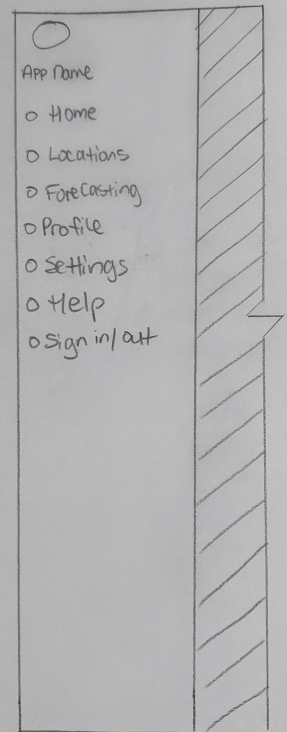 App name
Home
Locations
Forecasting
Profile
Settings
Help
Sign in/out